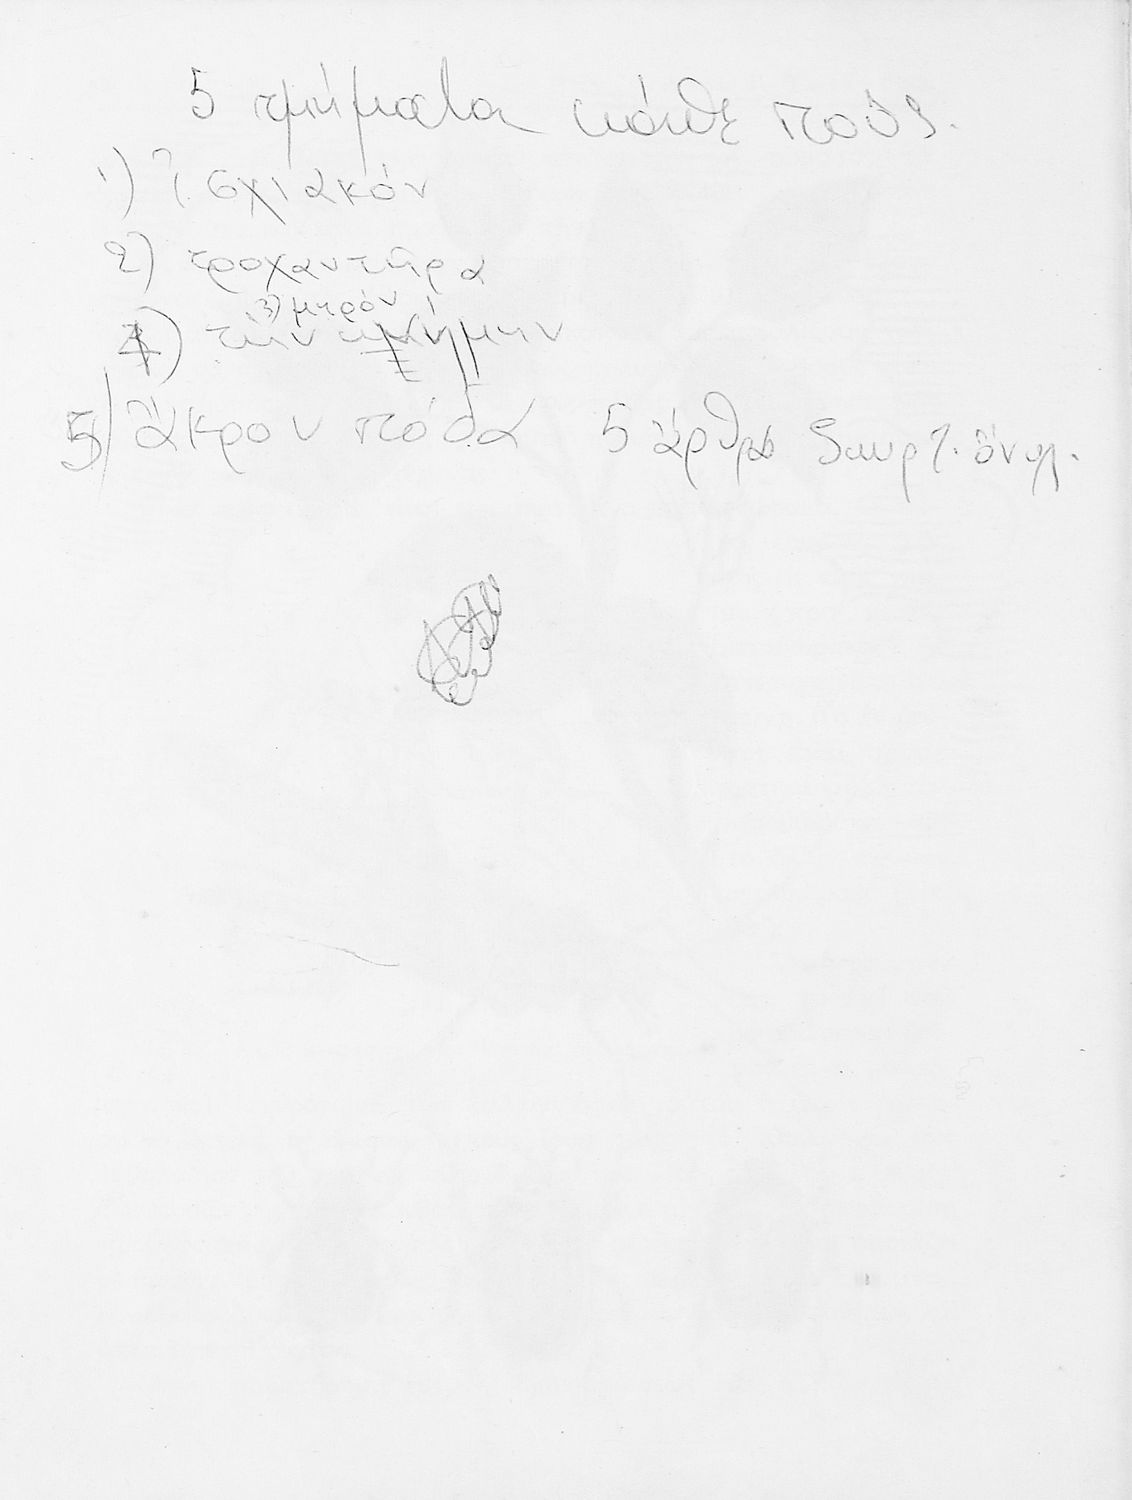 5 τμήματα κάθε πούς.
1) ἰσχιακόν
2) τροχαντῆρα
3) μηρόν
4) τήν κνήμην
5) ἄκρον πόδα 5 ἄρθρα